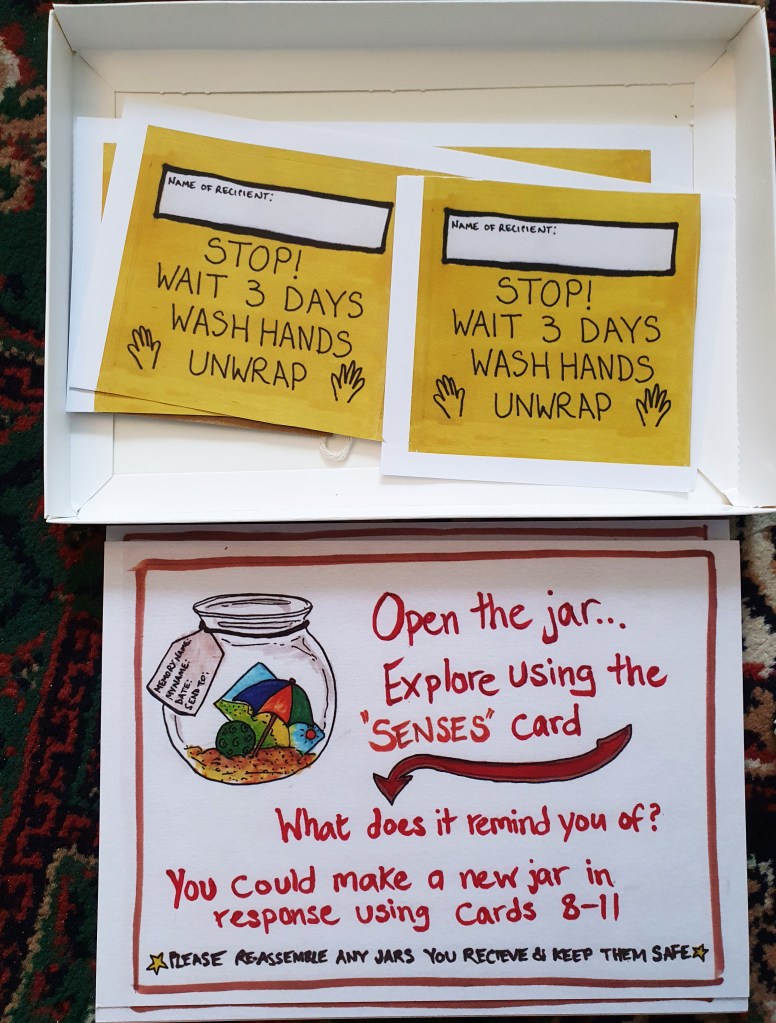 NAME OF RECIPIENT:
STOP!
WAIT 3 DAYS
WASH HANDS
UNWRAP
NAME OF RECIPIENT:
STOP!
WAIT 3 DAYS
WASH HANDS
UNWRAP
MEMORY NAME:
MY NAME:
DATE:
SEND TO:
Open the jar...
Explore using the
"SENSES" card
What does it remind you of?
You could make a new jar in
response using cards 8-11
PLEASE RE-ASSEMBLE ANY JARS YOU RECIEVE & KEEP THEM SAFE